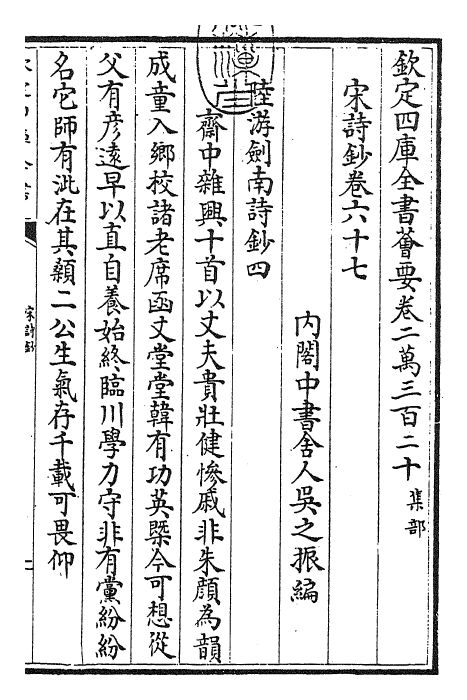 欽定四庫全書薈要卷二萬三百二十 集部
宋詩鈔卷六十七
內閣中書舍人吳之振編
陸游劍南詩鈔四
齋中雜興十首以丈夫貴壯健慘戚非朱顏為韻
成童入鄉校諸老席函丈堂堂韓有功英槩今可想從
父有彥遠早以直自養始終臨川學力守非有黨紛紛
名它師有泚在其顙二公生氣存千載可畏仰
宋詩鈔
一